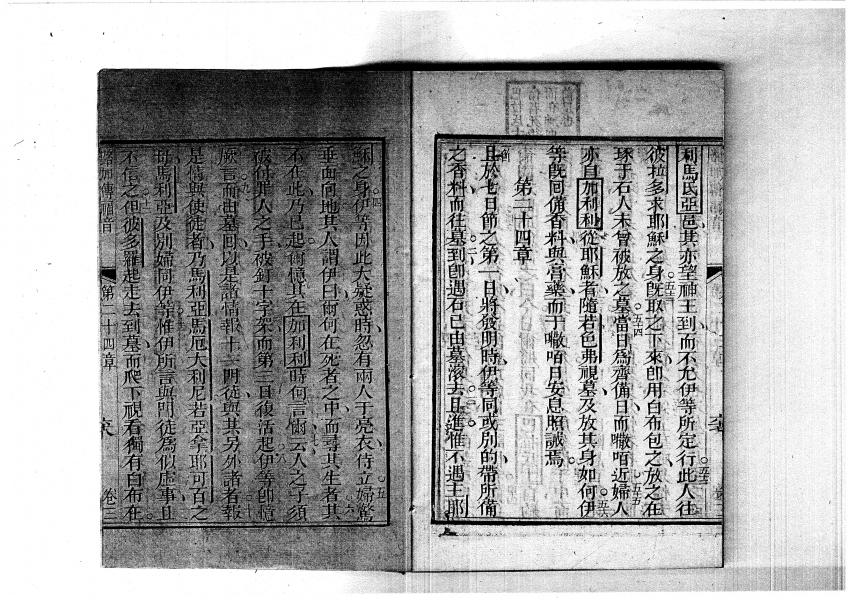 利馬氏亞邑其亦望神王到而不允伊等所定行此人往
彼拉多求耶穌之身既取之下來卽用白布包之放之在
琢于石人未曾被放之墓當日爲齊備日而𠿝咟近婦人
亦自加利利從耶穌者隨若色弗視墓及放其身如何伊
等旣回備香料與膏藥而于𠿝咟日安息照誡焉
第二十四章
且於七日節之第一日將發明時伊等同或別的帶所備
之香料而往墓到卽遇石已由墓滾去且進惟不遇主耶
穌之身伊等因此大疑惑時忽有兩人于亮衣侍立婦驚
垂面向地其人謂伊曰爾何在死者之中而尋其生者其
不在此乃已起爾憶其在加利利時何言爾云人之子須
被付罪人之手被釘十字架而第三日復活起伊等卽憶
厥言而由墓回以是諸情報十一門徒與其另外諸者報
是情與使徒者乃馬利亞馬厄大利尼若亞拿耶可百之
母馬利亞及別婦同伊等惟伊所言與門徒爲似虛事且
不信之但彼多羅起走去到墓而爬下視看獨有白布在
路加傳福音
第二十四章
卷三